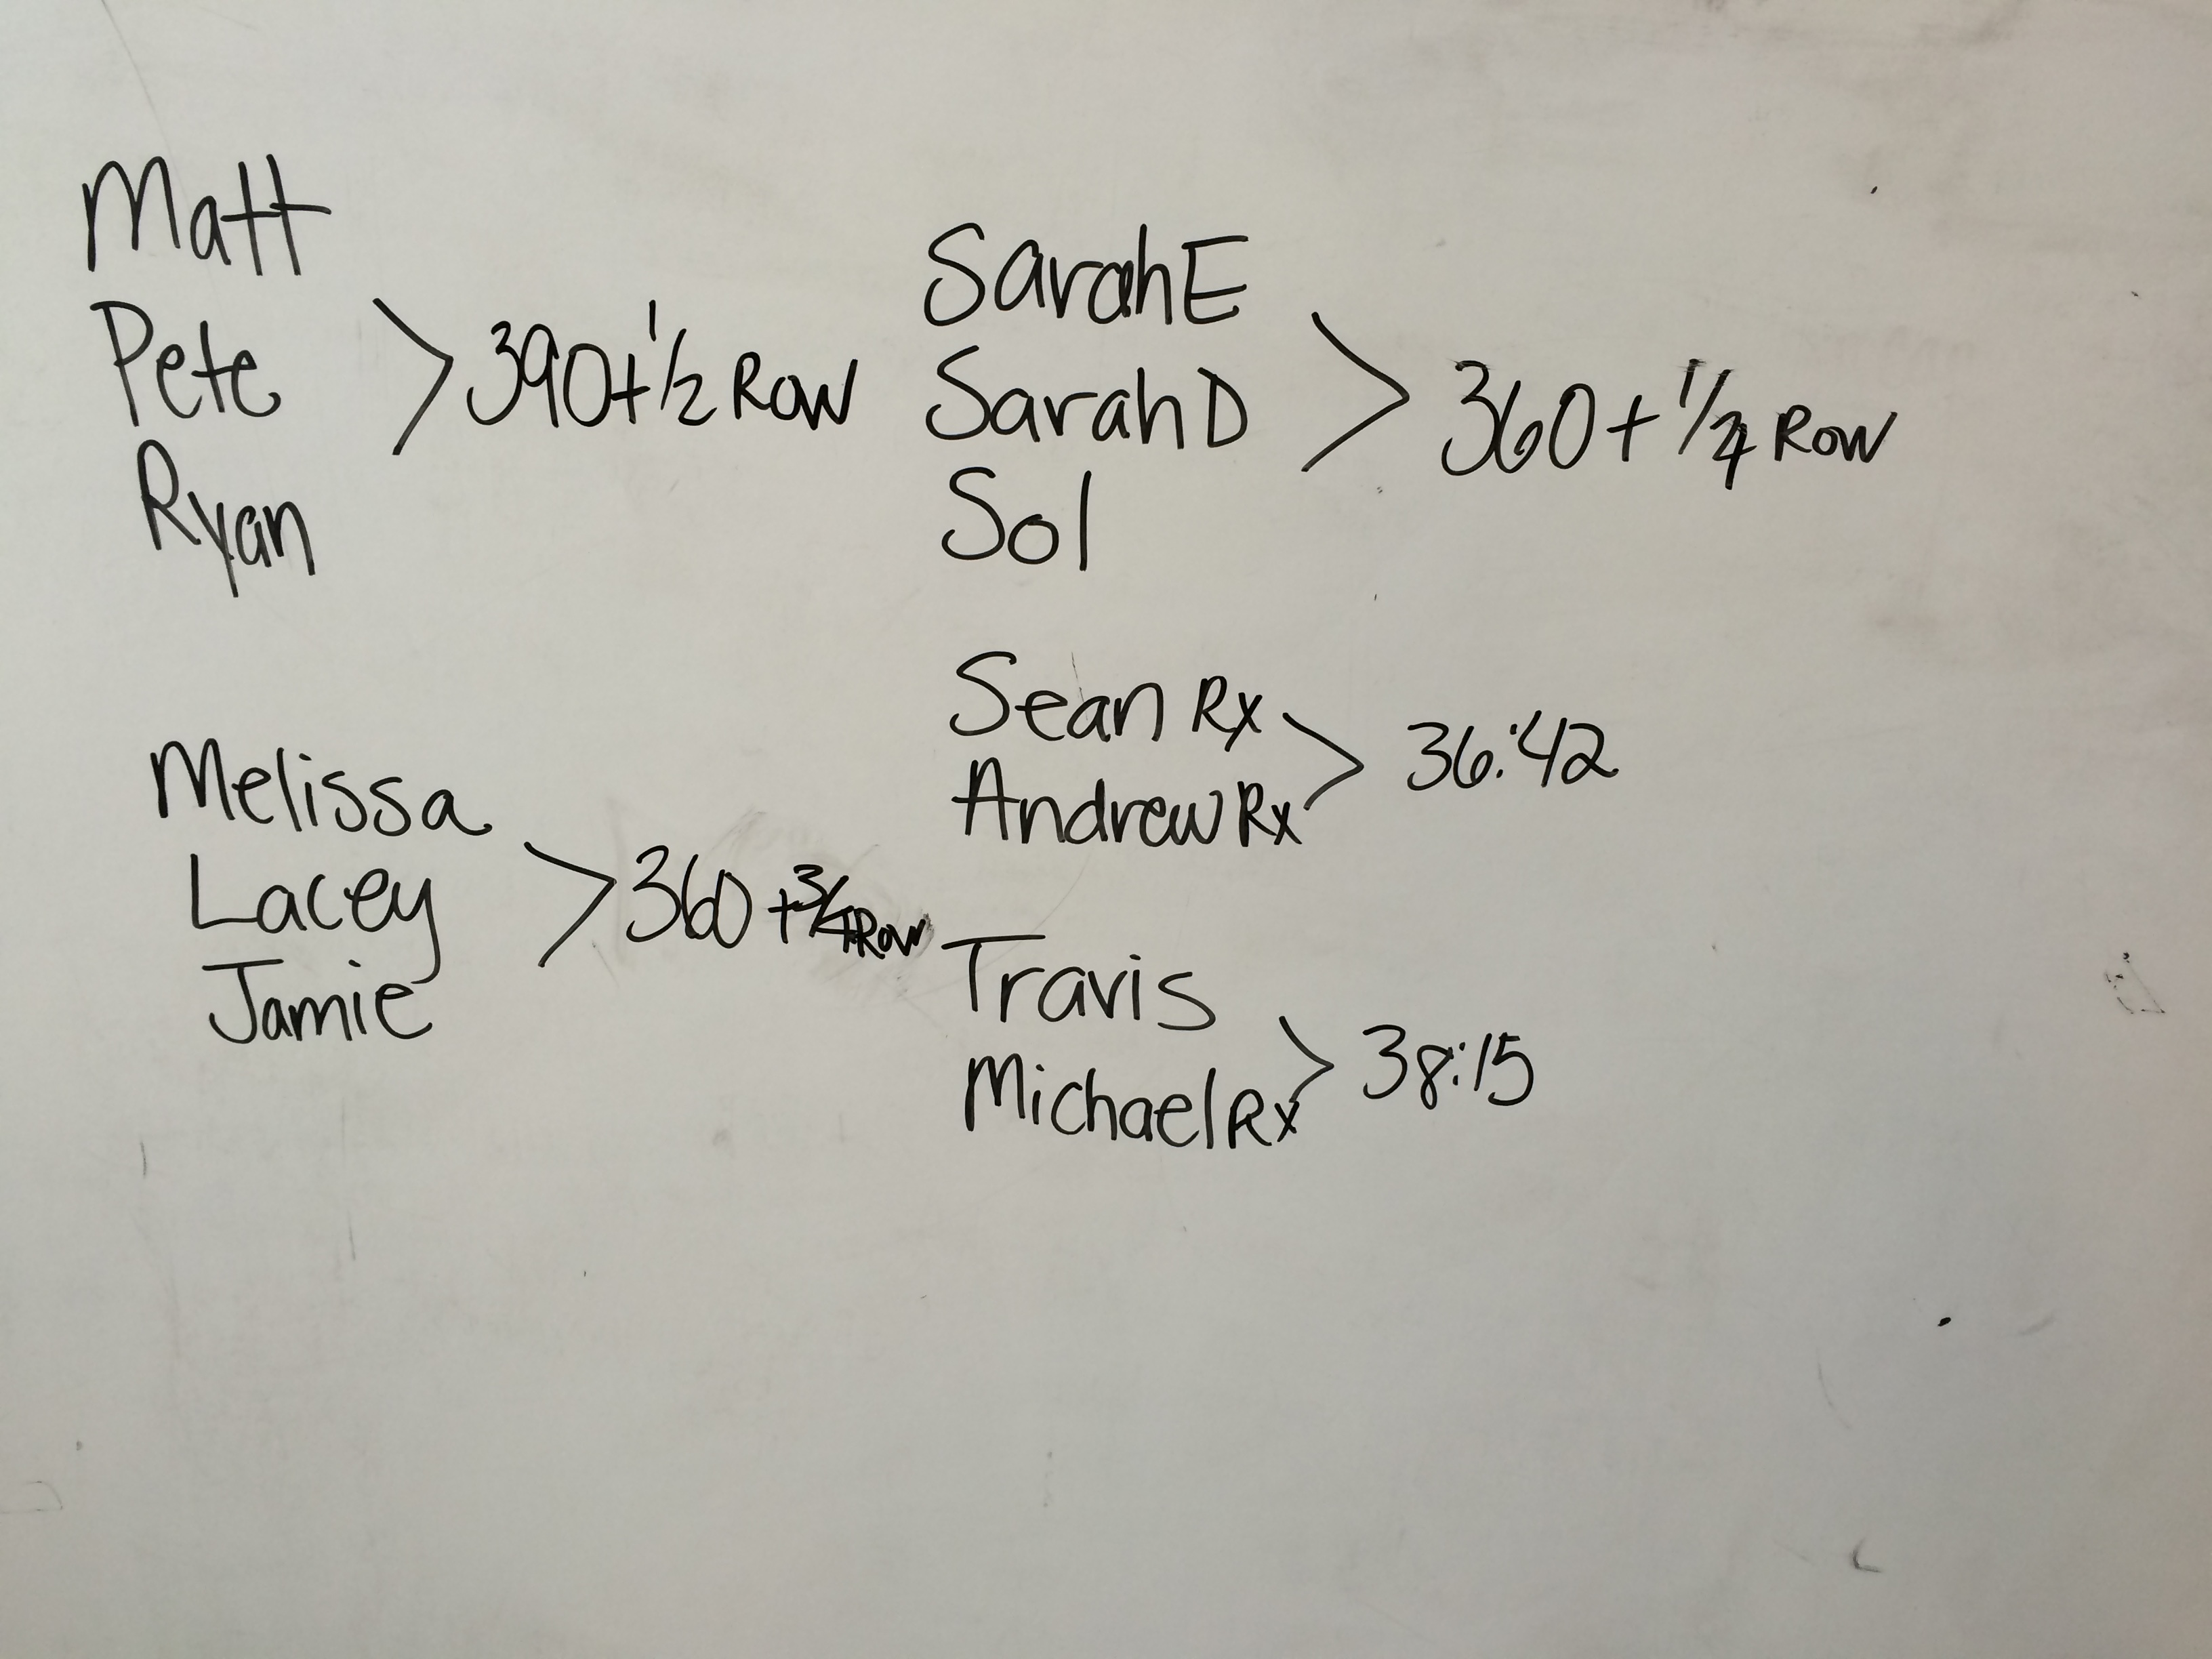 Matt
Pete
Ryan
> 390 + 1/2 Row
Melissa
Lacey
Jamie
> 360 + 3/4 Row
Sarah E
Sarah D
Sol
> 360 + 1/4 Row
Sean Rx
Andrew Rx
> 36:42
Travis
Michael Rx
> 38:15